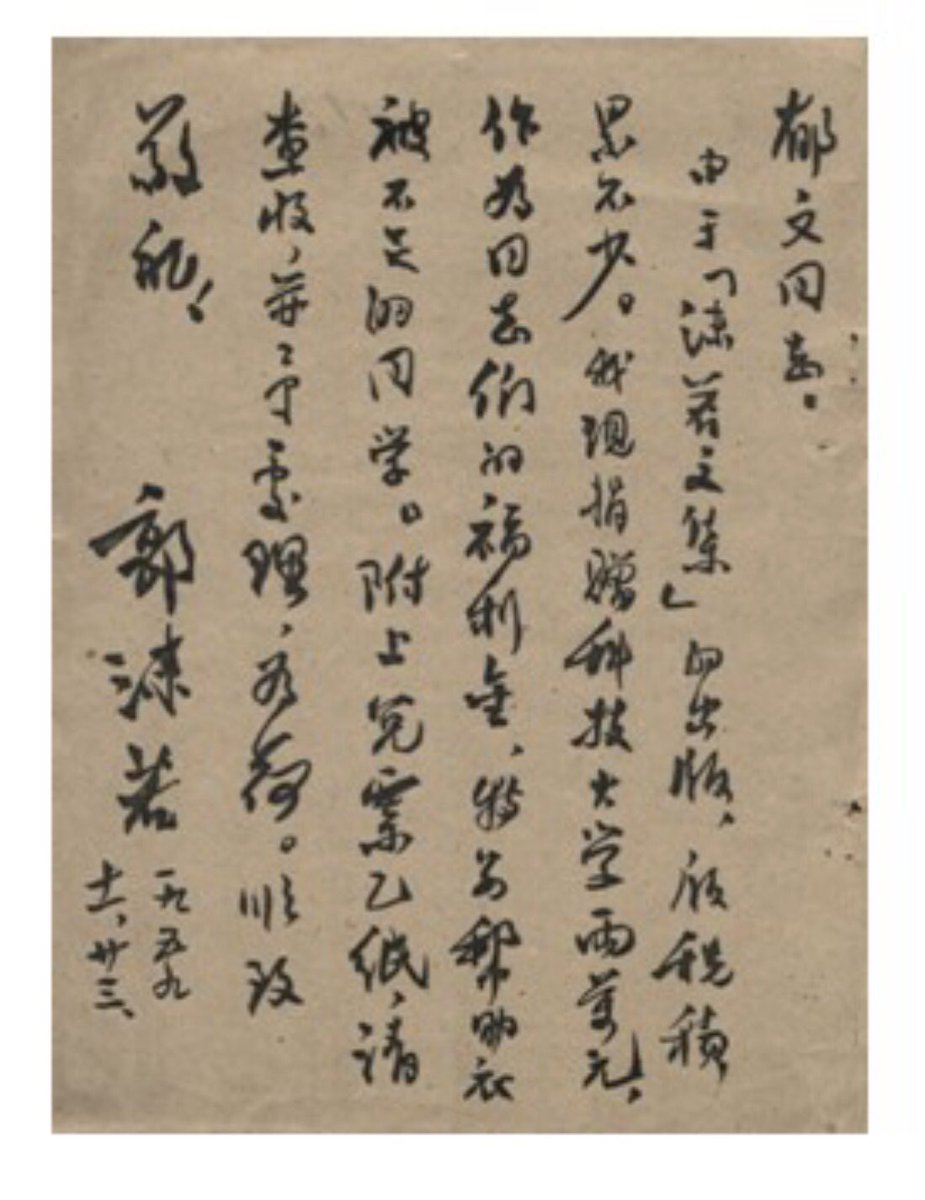 郁文同志:
由于「沫若文集」的出版,版税积
累不少。我现捐赠科技大学两万元,
作为同志们的福利金,特别帮助衣
被不足的同学。附上兑票乙纸,请
查收,并予处理,为荷。顺致
敬礼!
郭沫若
一九五九
十二、廿三、